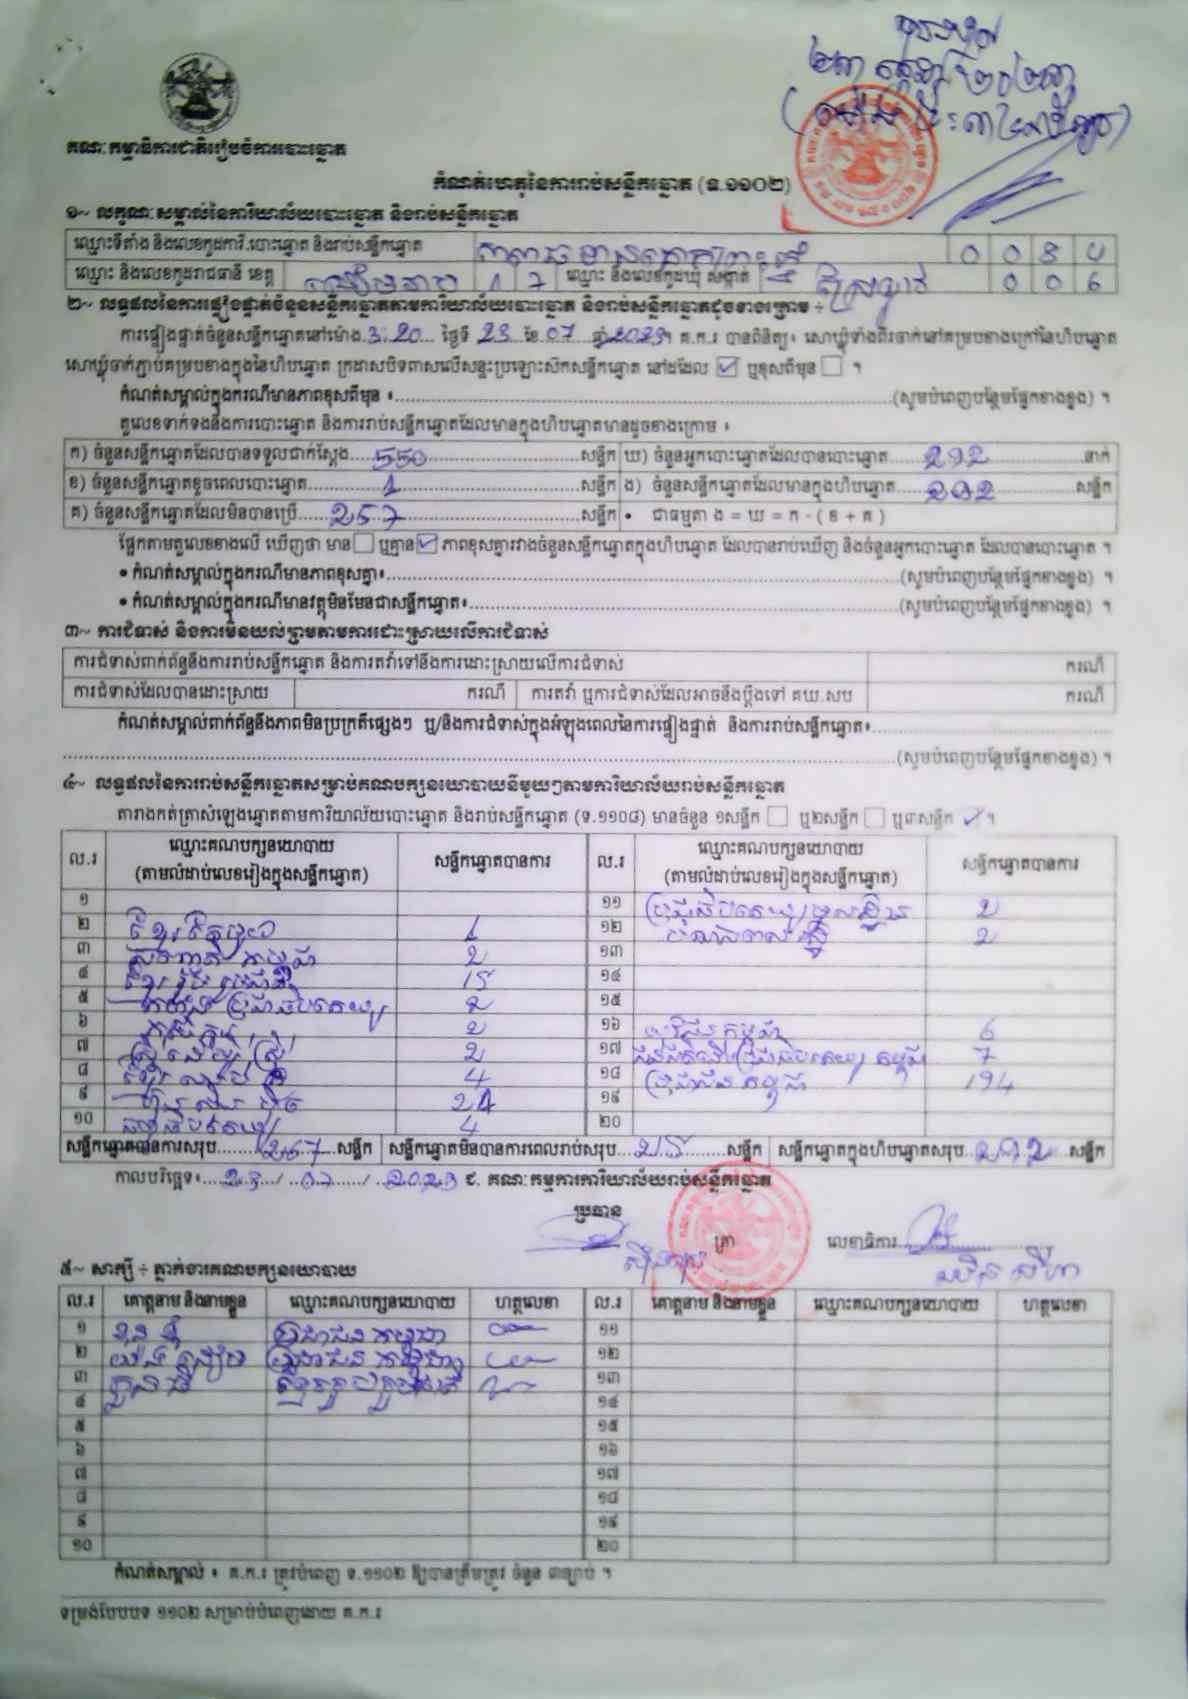 គណៈកម្មាធិការជាតិរៀបចំការបោះឆ្នោត
កំណត់ហេតុនៃការរាប់សន្លឹកឆ្នោត (ទ.១១០២)
១~ លក្ខណៈសម្គាល់នៃការិយាល័យបោះឆ្នោត និងរាប់សន្លឹកឆ្នោត
ឈ្មោះទីតាំង និងលេខកូដការិ.បោះឆ្នោត និងរាប់សន្លឹកឆ្នោត
ឈ្មោះ និងលេខកូដរាជធានី ខេត្ត សៀមរាប 1 7 ឈ្មោះ និងលេខកូដឃុំ សង្កាត់ 0 0 6
២~ លទ្ធផលនៃការផ្ទៀងផ្ទាត់ចំនួនសន្លឹកឆ្នោតតាមការិយាល័យបោះឆ្នោត និងរាប់សន្លឹកឆ្នោតដូចខាងក្រោម ÷
ការផ្ទៀងផ្ទាត់ចំនួនសន្លឹកឆ្នោតនៅម៉ោង 3:20 ថ្ងៃទី 23 ខែ 07 ឆ្នាំ 2023។ គ.ក.រ បានពិនិត្យ៖ សោឃ្លុំទាំងពីរចាក់នៅគម្របខាងក្រៅនៃហិបឆ្នោត
សោឃ្លុំចាក់ភ្ជាប់គម្របខាងក្នុងនៃហិបឆ្នោត ក្រដាសបិទពាសលើសន្ទះប្រឡោះស៊កសន្លឹកឆ្នោត នៅដដែល ☑ ឬខុសពីមុន ☐ ។
កំណត់សម្គាល់ក្នុងករណីមានភាពខុសពីមុន ៖ (សូមបំពេញបន្ថែមផ្នែកខាងខ្នង) ។
តួលេខទាក់ទងនឹងការបោះឆ្នោត និងការរាប់សន្លឹកឆ្នោតដែលមានក្នុងហិបឆ្នោតមានដូចខាងក្រោម ៖
ក) ចំនួនសន្លឹកឆ្នោតដែលបានទទួលជាក់ស្តែង 550 សន្លឹក ឃ) ចំនួនអ្នកបោះឆ្នោតដែលបានបោះឆ្នោត 292 នាក់
ខ) ចំនួនសន្លឹកឆ្នោតខូចពេលបោះឆ្នោត 1 សន្លឹក ង) ចំនួនសន្លឹកឆ្នោតដែលមានក្នុងហិបឆ្នោត 292 សន្លឹក
គ) ចំនួនសន្លឹកឆ្នោតដែលមិនបានប្រើ 257 សន្លឹក • ជាធម្មតា ង = ឃ = ក - ( ខ + គ )
ផ្អែកតាមតួលេខខាងលើ ឃើញថា មាន ☐ ឬគ្មាន ☑ ភាពខុសគ្នារវាងចំនួនសន្លឹកឆ្នោតក្នុងហិបឆ្នោត ដែលបានរាប់ឃើញ និងចំនួនអ្នកបោះឆ្នោត ដែលបានបោះឆ្នោត ។
• កំណត់សម្គាល់ក្នុងករណីមានភាពខុសគ្នា៖ (សូមបំពេញបន្ថែមផ្នែកខាងខ្នង) ។
• កំណត់សម្គាល់ក្នុងករណីមានវត្ថុមិនមែនជាសន្លឹកឆ្នោត៖ (សូមបំពេញបន្ថែមផ្នែកខាងខ្នង) ។
៣~ ការជំទាស់ និងការមិនយល់ព្រមតាមការដោះស្រាយលើការជំទាស់
ការជំទាស់ពាក់ព័ន្ធនឹងការរាប់សន្លឹកឆ្នោត និងការតវ៉ាទៅនឹងការដោះស្រាយលើការជំទាស់ ករណី
ការជំទាស់ដែលបានដោះស្រាយ ករណី ការតវ៉ា ឬការជំទាស់ដែលអាចនឹងប្តឹងទៅ គឃ.សប ករណី
កំណត់សម្គាល់ពាក់ព័ន្ធនឹងភាពមិនប្រក្រតីផ្សេងៗ ឬ/និងការជំទាស់ក្នុងអំឡុងពេលនៃការផ្ទៀងផ្ទាត់ និងការរាប់សន្លឹកឆ្នោត៖
(សូមបំពេញបន្ថែមផ្នែកខាងខ្នង) ។
៤~ លទ្ធផលនៃការរាប់សន្លឹកឆ្នោតសម្រាប់គណបក្សនយោបាយនីមួយៗតាមការិយាល័យរាប់សន្លឹកឆ្នោត
តារាងកត់ត្រាសំឡេងឆ្នោតតាមការិយាល័យបោះឆ្នោត និងរាប់សន្លឹកឆ្នោត (ទ.១១០៨) មានចំនួន ១សន្លឹក ☐ ឬ២សន្លឹក ☐ ឬ៣សន្លឹក ☑ ។
ល.រ ឈ្មោះគណបក្សនយោបាយ សន្លឹកឆ្នោតបានការ ល.រ ឈ្មោះគណបក្សនយោបាយ សន្លឹកឆ្នោតបានការ
(តាមលំដាប់លេខរៀងក្នុងសន្លឹកឆ្នោត) (តាមលំដាប់លេខរៀងក្នុងសន្លឹកឆ្នោត)
១ ១១ 2
២ ខ្មែរតែមួយ 1 ១២ 2
៣ 2 ១៣
៤ 15 ១៤
៥ 2 ១៥
៦ 2 ១៦ យុវជនកម្ពុជា 6
៧ 2 ១៧ 7
៨ 4 ១៨ ប្រជាជនកម្ពុជា 194
៩ ហ្វ៊ុនស៊ិនប៉ិច 24 ១៩
១០ 4 ២០
សន្លឹកឆ្នោតបានការសរុប 267 សន្លឹក សន្លឹកឆ្នោតមិនបានការពេលរាប់សរុប 25 សន្លឹក សន្លឹកឆ្នោតក្នុងហិបឆ្នោតសរុប 292 សន្លឹក
កាលបរិច្ឆេទ៖ 23 / 07 / 2023 ជ. គណៈកម្មការការិយាល័យរាប់សន្លឹកឆ្នោត
ប្រធាន
ត្រា លេខាធិការ
៥~ សាក្សី ÷ ភ្នាក់ងារគណបក្សនយោបាយ
ល.រ គោត្តនាម និងនាមខ្លួន ឈ្មោះគណបក្សនយោបាយ ហត្ថលេខា ល.រ គោត្តនាម និងនាមខ្លួន ឈ្មោះគណបក្សនយោបាយ ហត្ថលេខា
១ ប្រជាជនកម្ពុជា ១១
២ ប្រជាជនកម្ពុជា ១២
៣ ១៣
៤ ១៤
៥ ១៥
៦ ១៦
៧ ១៧
៨ ១៨
៩ ១៩
១០ ២០
កំណត់សម្គាល់ ៖ គ.ក.រ ត្រូវបំពេញ ទ.១១០២ ឱ្យបានត្រឹមត្រូវ ចំនួន ៣ច្បាប់ ។
ទម្រង់បែបបទ ១១០២ សម្រាប់បំពេញដោយ គ.ក.រ